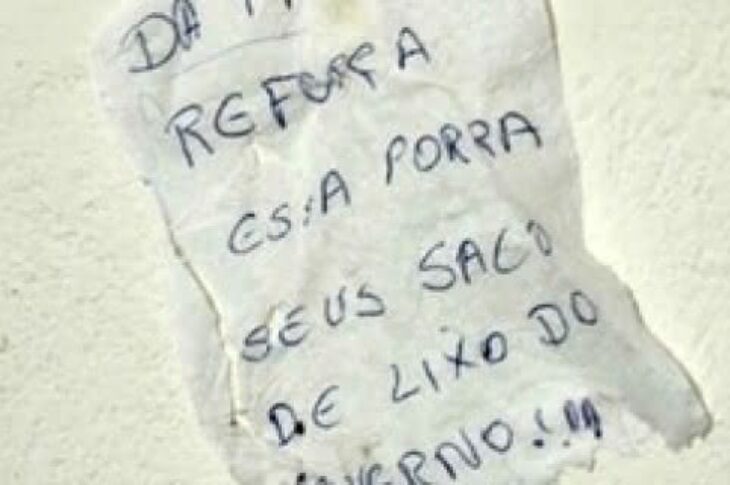 DA
REFORÇA
ESSA PORRA
SEUS SACO
DE LIXO DO
GOVERNO!!!